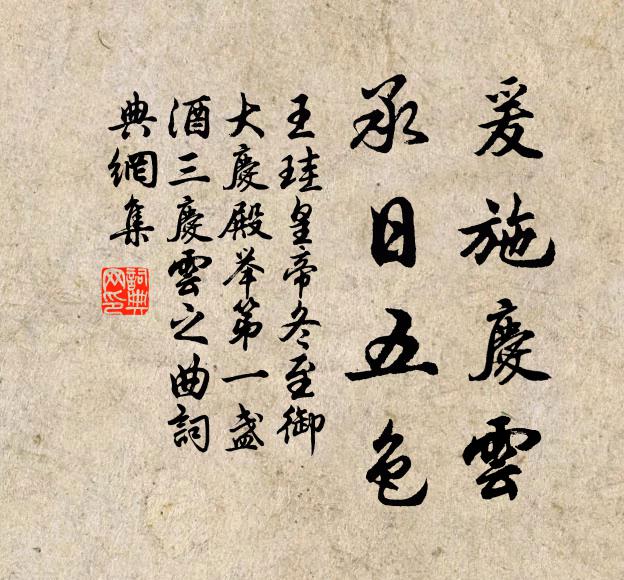 爰施慶雲
承日五色
王珪皇帝冬至御
大慶殿举第一盏
酒三慶雲之曲詞
典網集
詞典網印